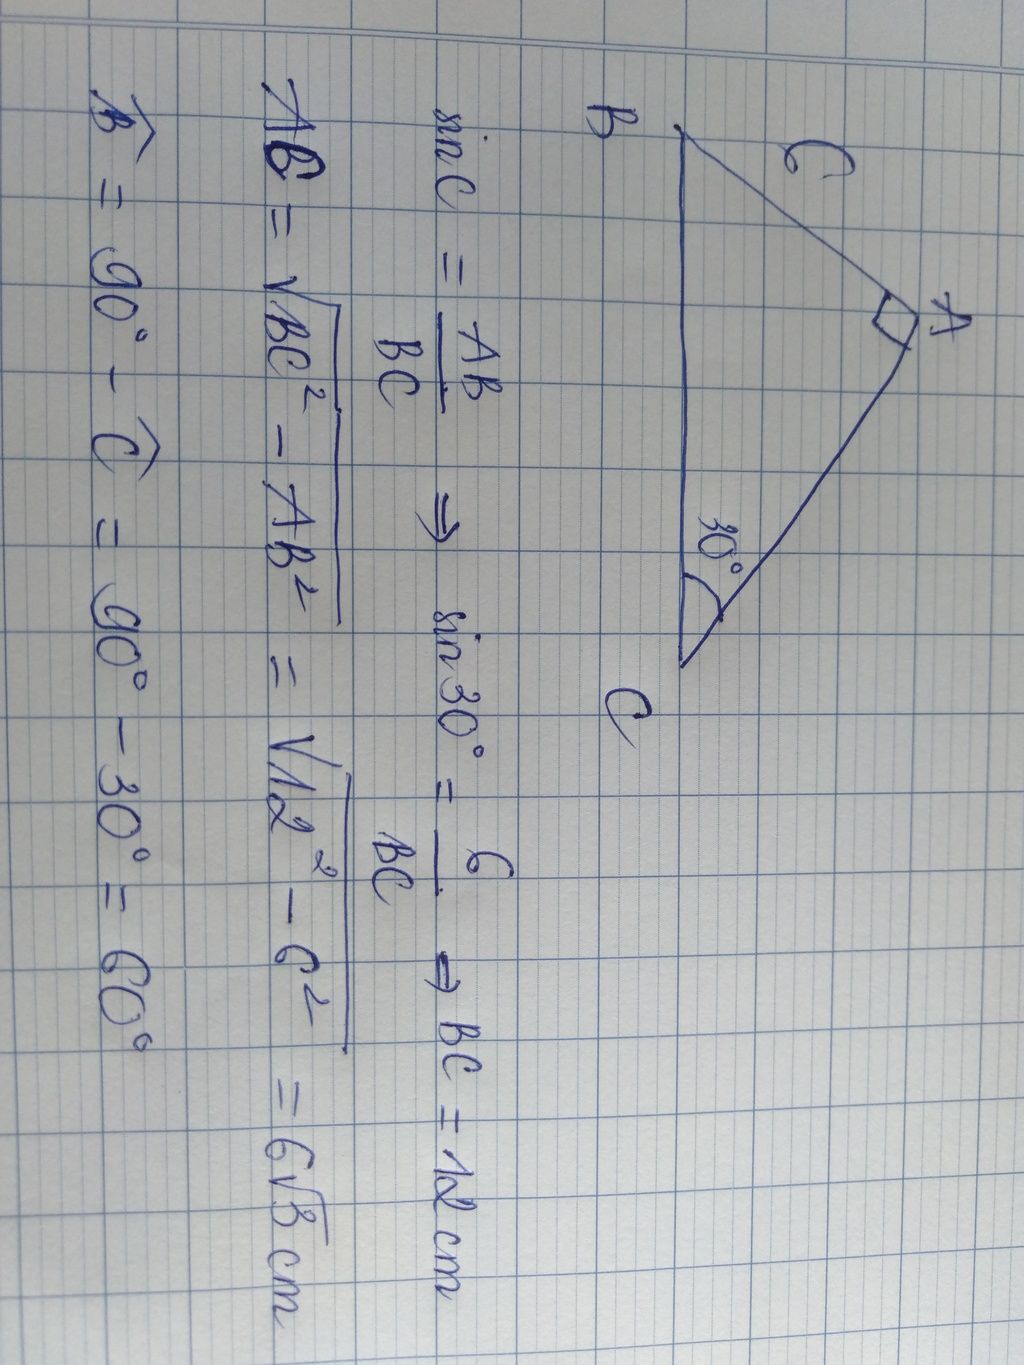 A
6
30°
B
C
sin C = AB/BC ⇒ sin 30° = 6/BC ⇒ BC = 12 cm
AC = √(BC² - AB²) = √(12² - 6²) = 6√3 cm
B̂ = 90° - Ĉ = 90° - 30° = 60°